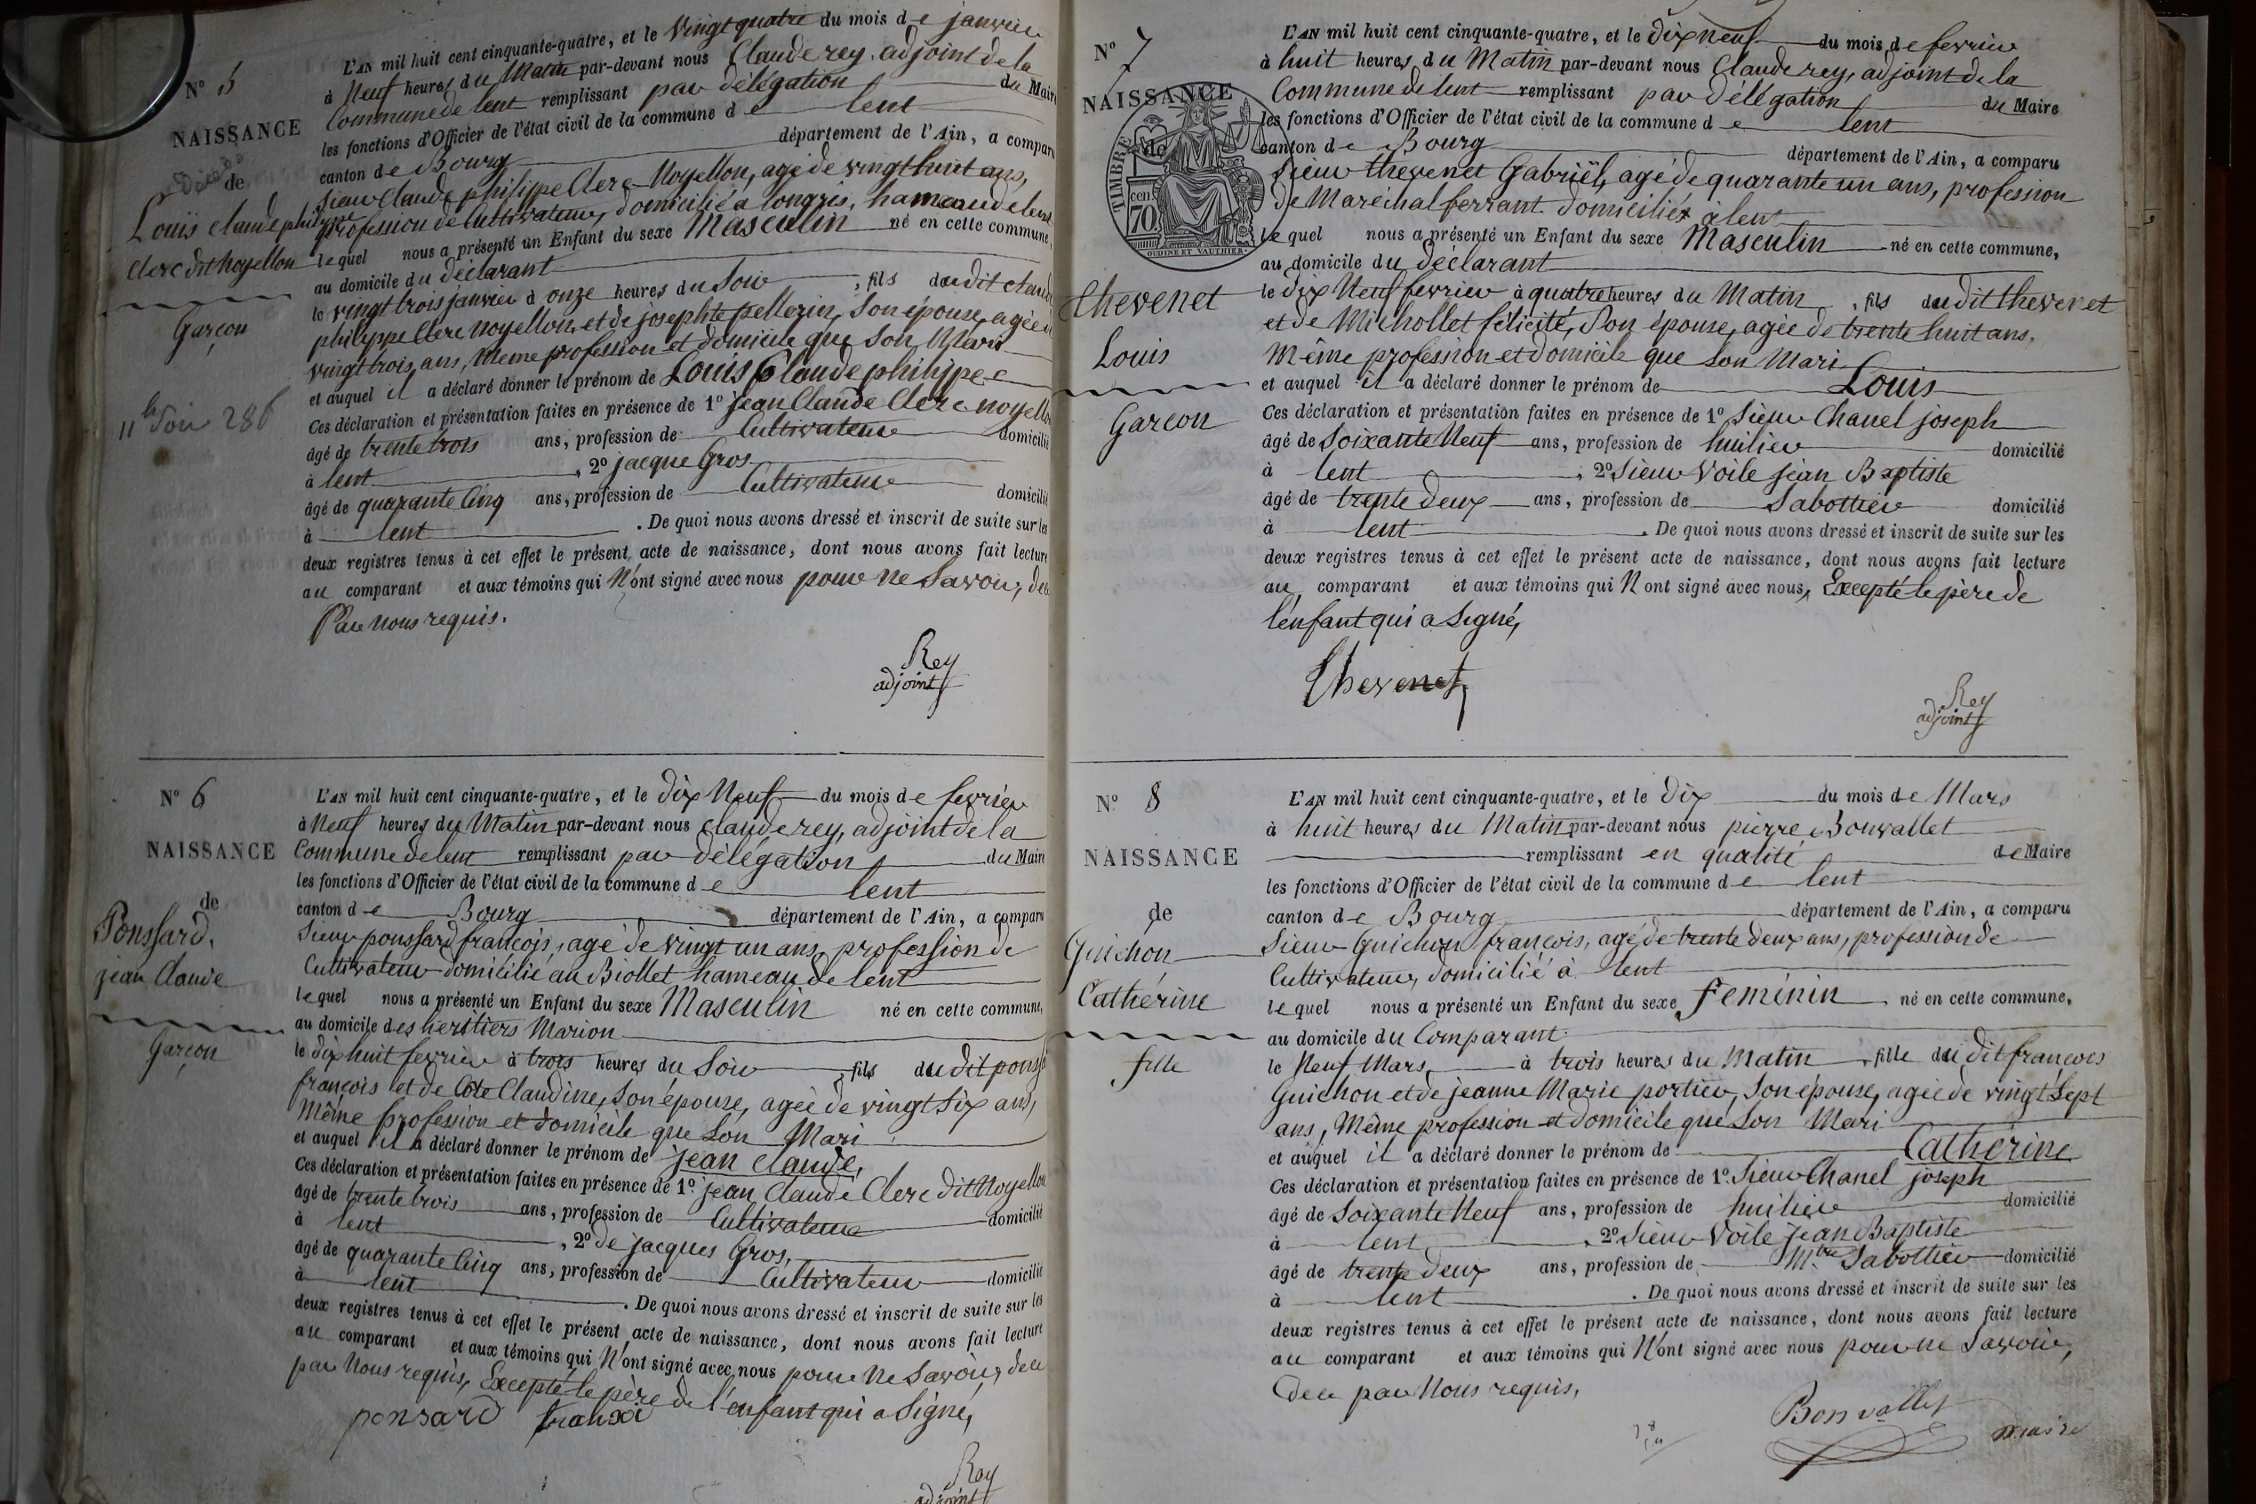 N° 5
NAISSANCE
de
Louis Claude philippe
Clerc dit Noyellon
Garçon
L'AN mil huit cent cinquante-quatre, et le Vingt quatre du mois de janvier
à Neuf heures du Matin par-devant nous Claude rey, adjoint de la
Commune de lent remplissant par délégation du Maire
les fonctions d'Officier de l'état civil de la commune de lent
canton de Bourg département de l'Ain, a comparu
Sieur Claude philippe Clerc Noyellon, agé de vingt huit ans,
profession de Cultivateur, domicilié a longris, hameau de lent
lequel nous a présenté un Enfant du sexe Masculin né en cette commune,
au domicile du déclarant
le vingt trois janvier à onze heures du Soir, fils dudit claude
philippe Clerc noyellon, et de josephte pellerin, Son épouse, agée de
vingt trois ans, Meme profession et domicile que Son Mari
et auquel il a déclaré donner le prénom de Louis Claude philippe
Ces déclaration et présentation faites en présence de 1° jean Claude Clerc noyellon
âgé de trente trois ans, profession de Cultivateur domicilié
à lent, 2° jacque Gros
âgé de quarante Cinq ans, profession de Cultivateur domicilié
à lent. De quoi nous avons dressé et inscrit de suite sur les
deux registres tenus à cet effet le présent acte de naissance, dont nous avons fait lecture
au comparant et aux témoins qui N'ont signé avec nous pour ne Savoir, de ce
Par nous requis.
Rey
adjoint
N° 6
NAISSANCE
de
Ponssard,
jean Claude
Garçon
L'AN mil huit cent cinquante-quatre, et le dix Neuf du mois de fevrier
à Neuf heures du Matin par-devant nous Claude rey, adjoint de la
Commune de lent remplissant par délégation du Maire
les fonctions d'Officier de l'état civil de la commune de lent
canton de Bourg département de l'Ain, a comparu
Sieur poussard françois, agé de vingt un ans, profession de
Cultivateur domicilié au Biollet hameau de lent
lequel nous a présenté un Enfant du sexe Masculin né en cette commune,
au domicile des heritiers Marion
le dix huit fevrier à trois heures du Soir, fils dudit ponss
françois et de Cote Claudine, Son épouse, agée de vingt Six ans,
Même profession et domicile que Son Mari
et auquel il a déclaré donner le prénom de jean claude,
Ces déclaration et présentation faites en présence de 1° jean Claude Clerc dit Noyellon
âgé de trente trois ans, profession de Cultivateur domicilié
à lent, 2° de jacques Gros,
âgé de quarante Cinq ans, profession de Cultivateur domicilié
à lent. De quoi nous avons dressé et inscrit de suite sur les
deux registres tenus à cet effet le présent acte de naissance, dont nous avons fait lecture
au comparant et aux témoins qui N'ont signé avec nous pour Ne Savoir, de ce
par Nous requis, Excepté le père de l'enfant qui a Signé,
ponsard
Rey
adjoint
N° 7
NAISSANCE
de
TIMBRE
70 cen
OUDINE ET VAUTHIER
Thevenet
Louis
Garcon
L'AN mil huit cent cinquante-quatre, et le dix neuf du mois de fevrier
à huit heures du Matin par-devant nous Claude rey, adjoint de la
Commune de lent remplissant par délégation du Maire
les fonctions d'Officier de l'état civil de la commune de lent
canton de Bourg département de l'Ain, a comparu
Sieur thevenet Gabriël, agé de quarante un ans, profession
De Maréchal ferrant domicilié à lent
lequel nous a présenté un Enfant du sexe Masculin né en cette commune,
au domicile du déclarant
le dix Neuf fevrier à quatre heures du Matin, fils dudit thevenet
et de Michollet félicité, Son épouse, agée de trente huit ans,
Même profession et domicile que Son Mari
et auquel il a déclaré donner le prénom de Louis
Ces déclaration et présentation faites en présence de 1° Sieur Chanel joseph
âgé de Soixante Neuf ans, profession de huilier domicilié
à lent, 2° Sieur Voile jean Baptiste
âgé de trente deux ans, profession de Sabottier domicilié
à lent. De quoi nous avons dressé et inscrit de suite sur les
deux registres tenus à cet effet le présent acte de naissance, dont nous avons fait lecture
au comparant et aux témoins qui N'ont signé avec nous, Excepté le père de
l'enfant qui a Signé,
Thevenet
Rey
adjoint
N° 8
NAISSANCE
de
Guichon
Cathérine
fille
L'AN mil huit cent cinquante-quatre, et le dix du mois de Mars
à huit heures du Matin par-devant nous pierre Bonvallet
remplissant en qualité de Maire
les fonctions d'Officier de l'état civil de la commune de lent
canton de Bourg département de l'Ain, a comparu
Sieur Guichon françois, agé de trente deux ans, profession de
Cultivateur, domicilié à lent
lequel nous a présenté un Enfant du sexe feminin né en cette commune,
au domicile du Comparant
le Neuf Mars à trois heures du Matin, fille dudit françois
Guichon et de jeanne Marie portier, Son épouse, agée de vingt Sept
ans, Même profession et domicile que Son Mari
et auquel il a déclaré donner le prénom de Cathérine
Ces déclaration et présentation faites en présence de 1° Sieur Chanel joseph
âgé de Soixante Neuf ans, profession de huilier domicilié
à lent, 2° Sieur Voile jean Baptiste
âgé de trente deux ans, profession de Mtre Sabottier domicilié
à lent. De quoi nous avons dressé et inscrit de suite sur les
deux registres tenus à cet effet le présent acte de naissance, dont nous avons fait lecture
au comparant et aux témoins qui N'ont signé avec nous pour ne Savoir,
de ce par Nous requis,
Bonvallet
maire